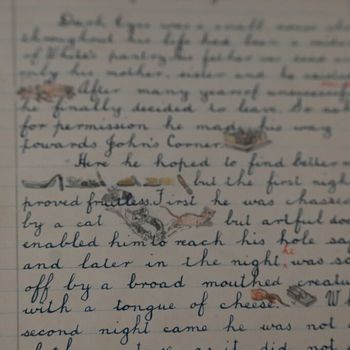 Dark Eyes was a small
throughout his life had been a
of White's pantry his father was
only his mother, sister and he
After many years of
he finally decided to leave. So
for permission he made his way
towards John's Corner
Here he hoped to find better
but the first nigh
proved fruitless. First he was chassed
by a cat but artful dod
enabled him to reach his hole saf
and later in the night, he was sc
off by a broad mouthed creatu
with a tongue of cheese. W
second night came he was not
as it did not